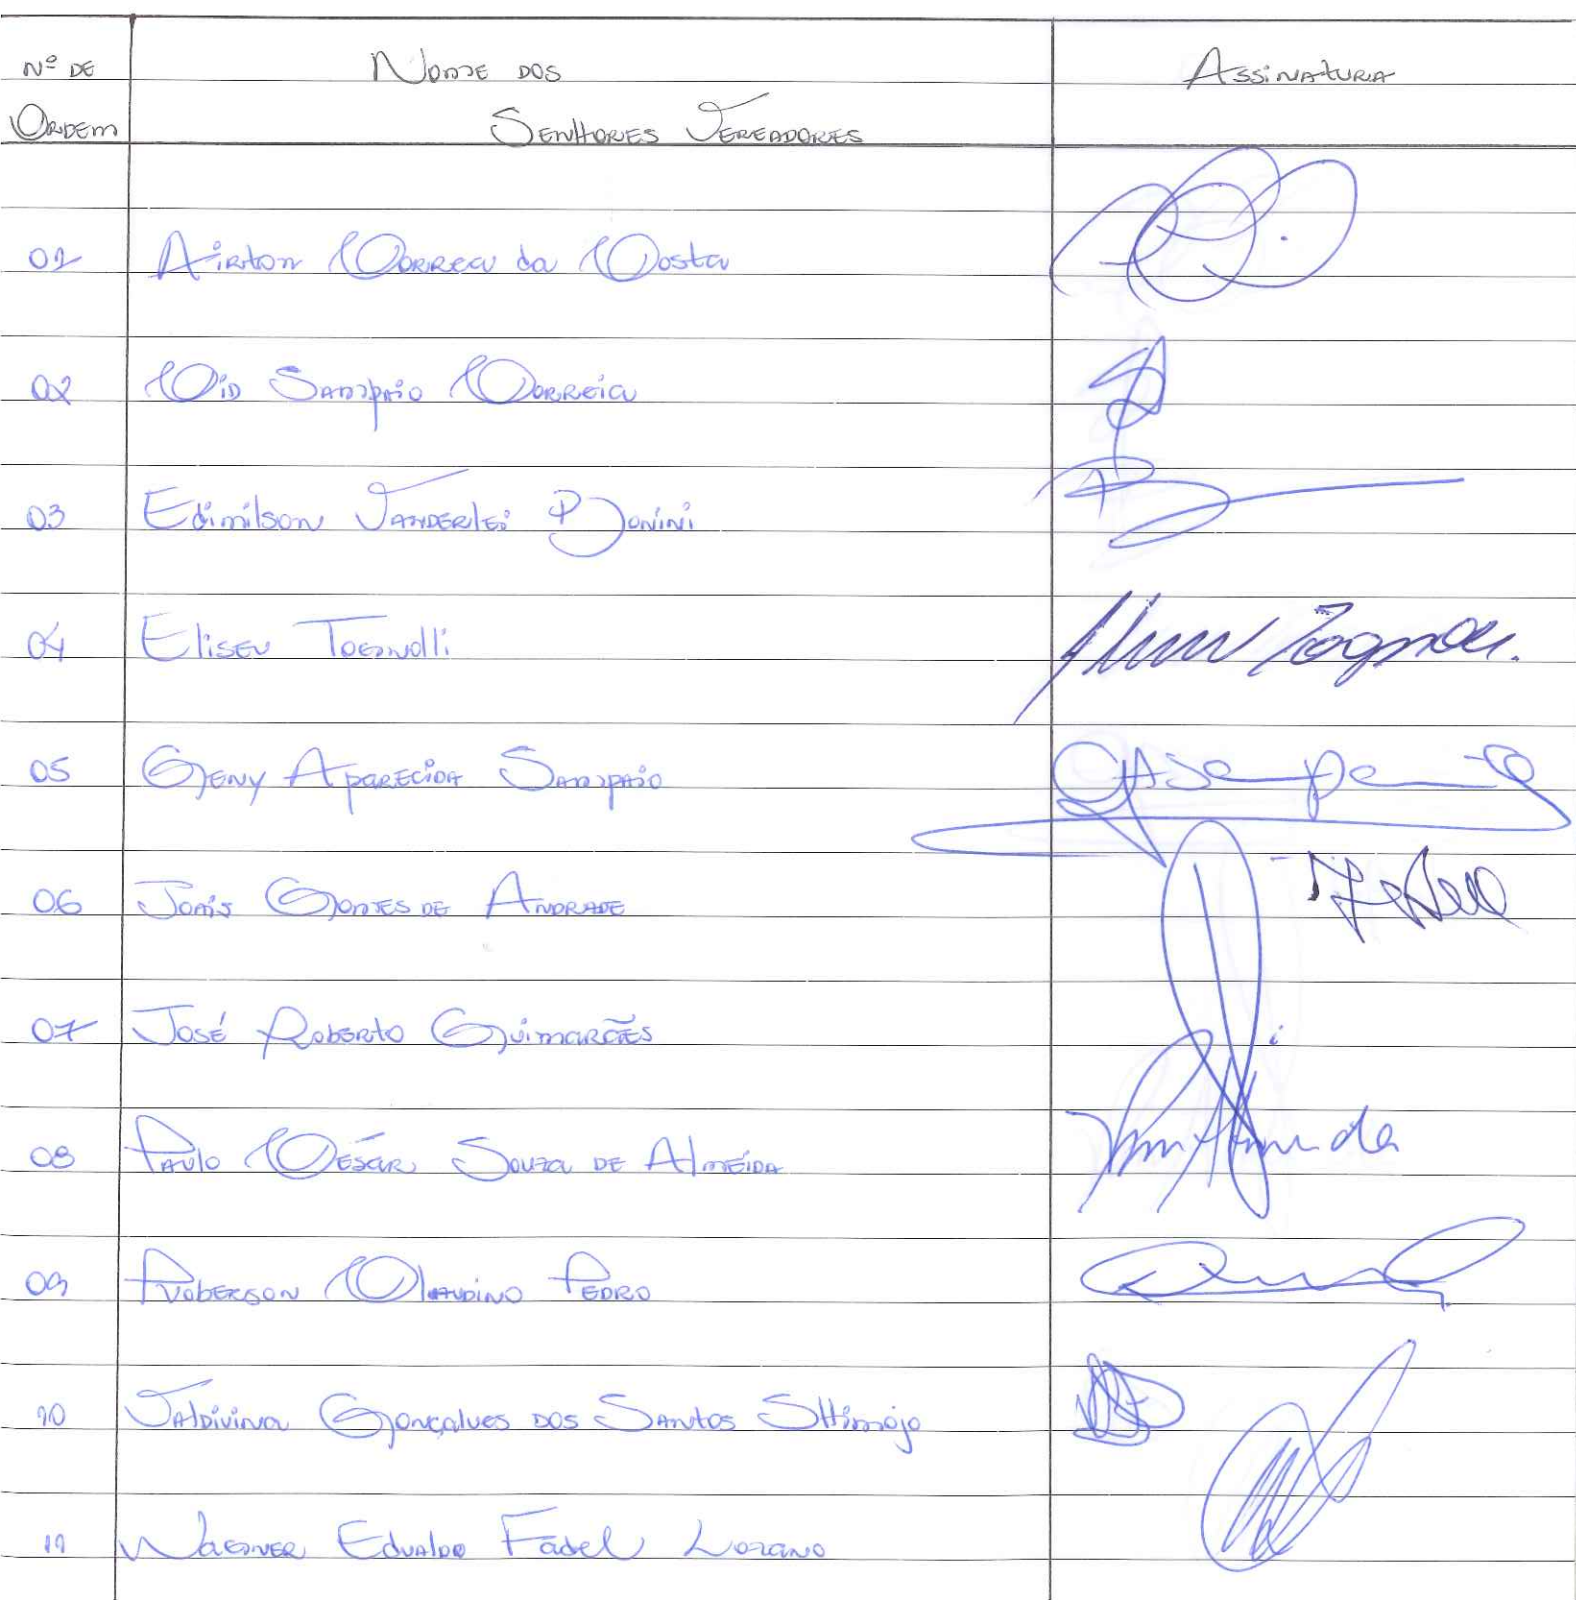 Nº DE Nome DOS Assinatura
Ordem Senhores Vereadores
01 Airton Correa da Costa
02 Cid Sampaio Correia
03 Edimilson Vanderlei Bonini
04 Eliseu Tognolli
05 Geny Aparecida Sampaio
06 Jonis Gomes de Andrade
07 José Roberto Guimarães
08 Paulo César Souza de Almeida
09 Roberson Claudino Pedro
10 Valdivina Gonçalves dos Santos Shimojo
11 Wagner Edualdo Fadel Lozano